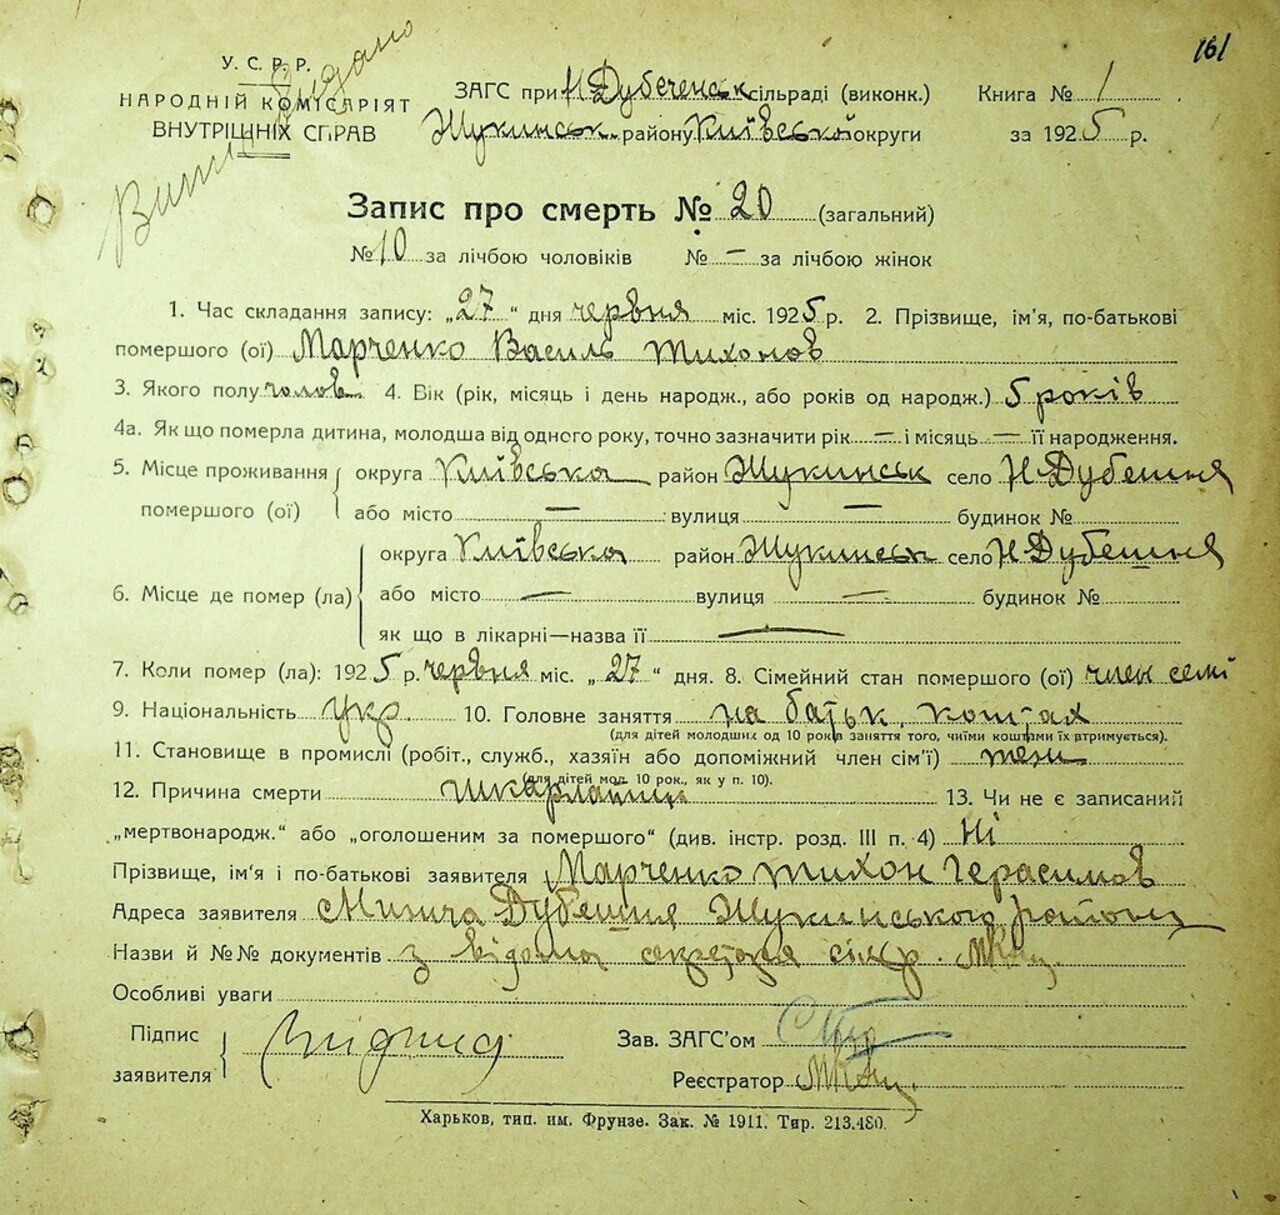 161
У. С. Р. Р.
НАРОДНІЙ КОМІСАРІЯТ
ВНУТРІШНІХ СПРАВ
Витяг видано
ЗАГС при Н Дубеченськ сільраді (виконк.) Книга № 1
Жукинськ. району Київської округи за 1925 р.
Запис про смерть № 20 (загальний)
№ 10 за лічбою чоловіків № — за лічбою жінок
1. Час складання запису: „27“ дня червня міс. 1925 р. 2. Прізвище, ім’я, по-батькові
помершого (ої) Марченко Василь Тихонов
3. Якого полу чолов. 4. Вік (рік, місяць і день народж., або років од народж.) 5 років
4а. Як що померла дитина, молодша від одного року, точно зазначити рік — і місяць — її народження.
5. Місце проживання помершого (ої) округа Київська район Жукинськ село Н-Дубешня
або місто — вулиця — будинок №
6. Місце де помер (ла) округа Київська район Жукинськ село Н-Дубешня
або місто — вулиця — будинок №
як що в лікарні—назва її —
7. Коли помер (ла): 1925 р. червня міс. „27“ дня. 8. Сімейний стан помершого (ої) член семі
9. Національність Укр. 10. Головне заняття на батьк. коштах
(для дітей молодших од 10 років заняття того, чиїми коштами їх втримується).
11. Становище в промислі (робіт., служб., хазяїн або допоміжний член сім’ї) теж
(для дітей мол. 10 рок., як у п. 10).
12. Причина смерти шкарлатина 13. Чи не є записаний
„мертвонародж.“ або „оголошеним за помершого“ (див. інстр. розд. III п. 4) Ні
Прізвище, ім’я і по-батькові заявителя Марченко Тихон Герасимов
Адреса заявителя Дубешня Жукинського району
Назви й №№ документів з відома секретаря сільр.
Особливі уваги
Підпис заявителя
Зав. ЗАГС’ом
Реєстратор
Харьков, тип. им. Фрунзе. Зак. № 1911. Тир. 213.480.